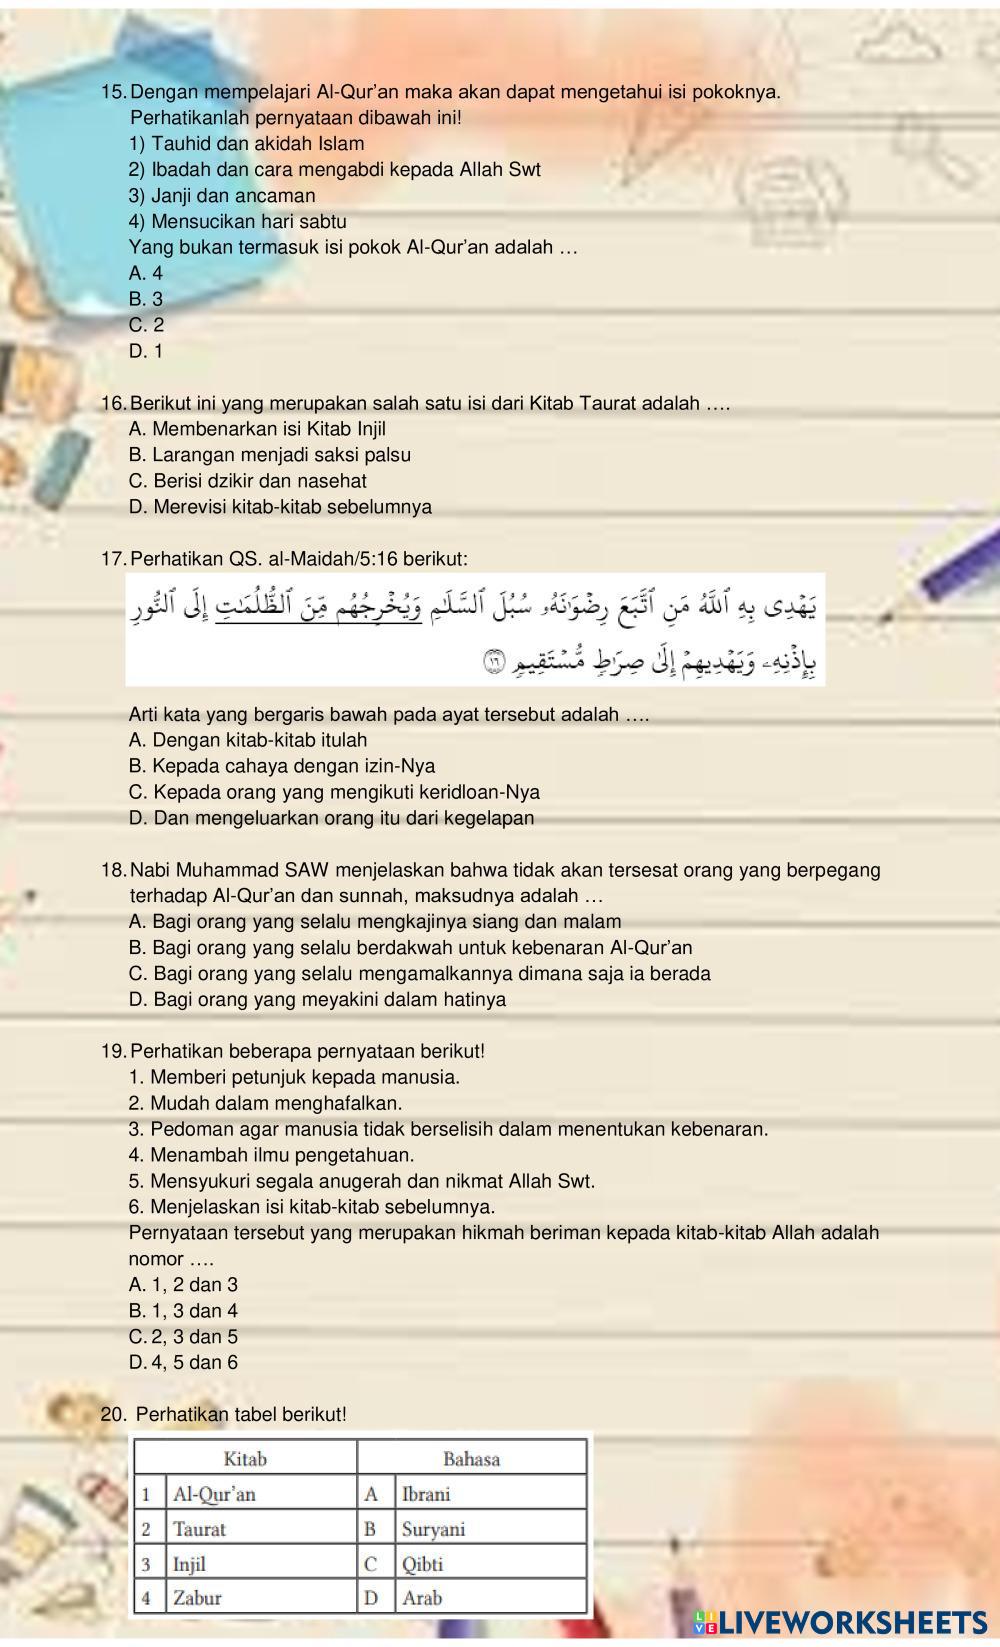 15. Dengan mempelajari Al-Qur'an maka akan dapat mengetahui isi pokoknya.
Perhatikanlah pernyataan dibawah ini!
1) Tauhid dan akidah Islam
2) Ibadah dan cara mengabdi kepada Allah Swt
3) Janji dan ancaman
4) Mensucikan hari sabtu
Yang bukan termasuk isi pokok Al-Qur'an adalah …
A. 4
B. 3
C. 2
D. 1
16. Berikut ini yang merupakan salah satu isi dari Kitab Taurat adalah ….
A. Membenarkan isi Kitab Injil
B. Larangan menjadi saksi palsu
C. Berisi dzikir dan nasehat
D. Merevisi kitab-kitab sebelumnya
17. Perhatikan QS. al-Maidah/5:16 berikut:
يَهْدِى بِهِ ٱللَّهُ مَنِ ٱتَّبَعَ رِضْوَٰنَهُۥ سُبُلَ ٱلسَّلَٰمِ وَيُخْرِجُهُم مِّنَ ٱلظُّلُمَٰتِ إِلَى ٱلنُّورِ
بِإِذْنِهِۦ وَيَهْدِيهِمْ إِلَىٰ صِرَٰطٍ مُّسْتَقِيمٍ ۝١٦
Arti kata yang bergaris bawah pada ayat tersebut adalah ….
A. Dengan kitab-kitab itulah
B. Kepada cahaya dengan izin-Nya
C. Kepada orang yang mengikuti keridloan-Nya
D. Dan mengeluarkan orang itu dari kegelapan
18. Nabi Muhammad SAW menjelaskan bahwa tidak akan tersesat orang yang berpegang
terhadap Al-Qur'an dan sunnah, maksudnya adalah …
A. Bagi orang yang selalu mengkajinya siang dan malam
B. Bagi orang yang selalu berdakwah untuk kebenaran Al-Qur'an
C. Bagi orang yang selalu mengamalkannya dimana saja ia berada
D. Bagi orang yang meyakini dalam hatinya
19. Perhatikan beberapa pernyataan berikut!
1. Memberi petunjuk kepada manusia.
2. Mudah dalam menghafalkan.
3. Pedoman agar manusia tidak berselisih dalam menentukan kebenaran.
4. Menambah ilmu pengetahuan.
5. Mensyukuri segala anugerah dan nikmat Allah Swt.
6. Menjelaskan isi kitab-kitab sebelumnya.
Pernyataan tersebut yang merupakan hikmah beriman kepada kitab-kitab Allah adalah
nomor ….
A. 1, 2 dan 3
B. 1, 3 dan 4
C. 2, 3 dan 5
D. 4, 5 dan 6
20. Perhatikan tabel berikut!
Kitab Bahasa
1 Al-Qur'an A Ibrani
2 Taurat B Suryani
3 Injil C Qibti
4 Zabur D Arab
LIVE LIVEWORKSHEETS